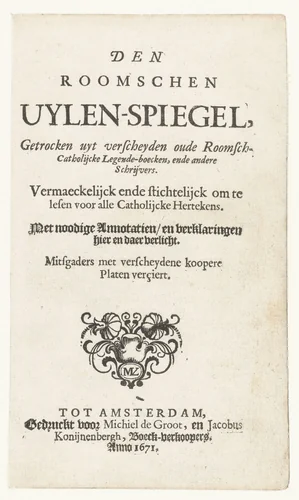 DEN
ROOMSCHEN
UYLEN-SPIEGEL,
Getrocken uyt verscheyden oude Roomsch-
Catholijcke Legende-boecken, ende andere
Schrijvers.
Vermaeckelijck ende stichtelijck om te
lesen voor alle Catholijcke Hertekens.
Met noodige Annotatien/ en verklaringen
hier en daer verlicht.
Mitsgaders met verscheydene koopere
Platen verçiert.
TOT AMSTERDAM,
Gedruckt voor Michiel de Groot, en Jacobus
Konijnenbergh, Boeck-verkoopers.
Anno 1671.